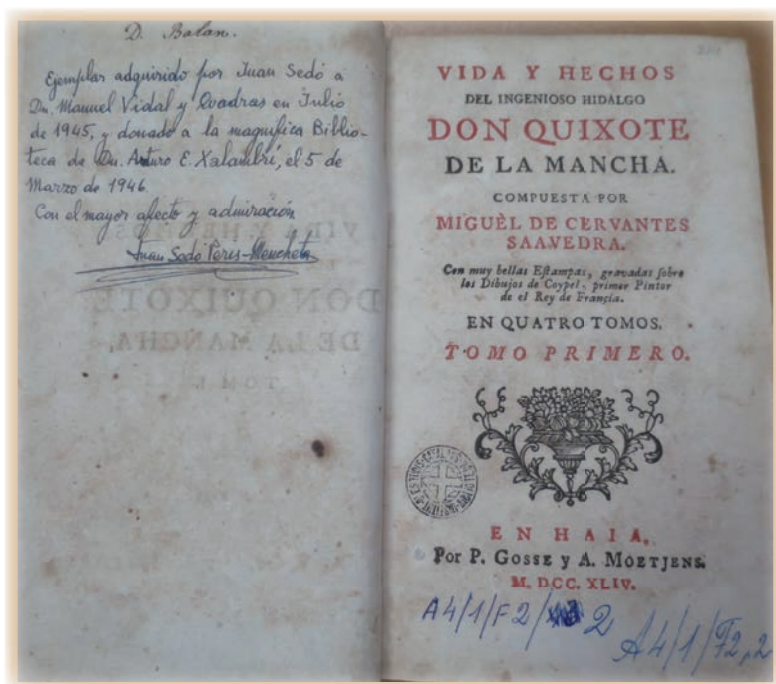 D. Balan.
Ejemplar adquirido por Juan Sedó a
Dn. Manuel Vidal y Quadras en Julio
de 1945, y donado a la magnífica Biblio-
teca de Dn. Arturo E. Xalambrí, el 5 de
Marzo de 1946.
Con el mayor afecto y admiración
Juan Sedó Peris-Mencheta
VIDA Y HECHOS
DON QUIXOTE
DE LA MANCHA,
TOM. I.
VIDA Y HECHOS
DEL INGENIOSO HIDALGO
DON QUIXOTE
DE LA MANCHA.
COMPUESTA POR
MIGUÈL DE CERVANTES
SAAVEDRA.
Con muy bellas Eſtampas, gravadas ſobre
los Dibujos de Coypel, primer Pintor
de el Rey de Francia.
EN QUATRO TOMOS.
TOMO PRIMERO.
EN HAIA,
Por P. GOSSE y A. MOETJENS.
M. DCC. XLIV.
A4/1/F2/ 2
A4/1/F2,2